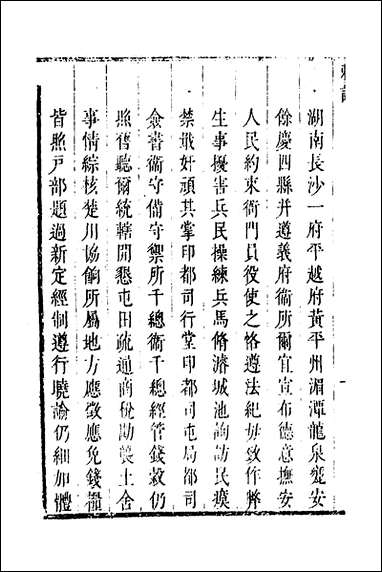 湖南長沙一府平越府黃平州湄潭龍泉甕安
餘慶四縣并遵義府衞所爾宜宣布德意撫安
人民約束衙門員役使之恪遵法紀毋致作弊
生事擾害兵民操練兵馬脩濬城池詢訪民瘼
禁戢奸頑其掌印都司行堂印都司屯局都司
僉書衞守備守禦所千總衞千總經管錢穀仍
照舊聽爾統轄開懇屯田疏通商稅勘襲土舍
事情綜核楚川協餉所屬地方應徵應免錢糧
皆照戸部題過新定經制遵行曉諭仍細加體